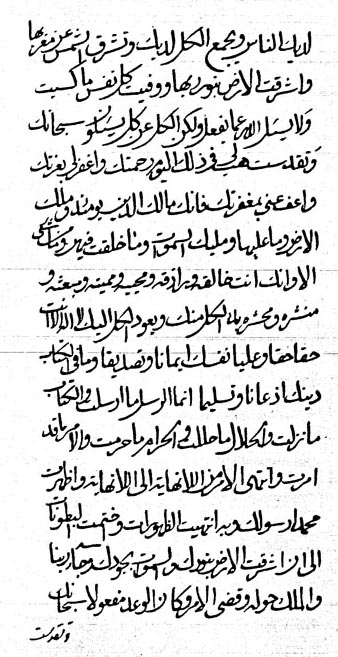 لديك الناس ويجمع الكل لديك وتشرق الشمس عن مغربها
واشرقت الارض بنور ربها ووفيت كل نفس ما كسبت
ولا يسئل الا عما يفعل ولكن الكل عن كل يسئلون سبحانك
وتقدست هب لي في ذلك اليوم رحمتك واغفر لي بعزتك
واعف عني بمغفرتك فانك مالك الدين يومئذ وملك
الارض وما عليها ومليك السموات وما خلقت فيهن وما
الا وانك انت خالقه ورازقه ومحييه ومميته وبعثه و
منشره ومحشره بدء الكل منك ويعود الكل اليك لا اله الا انت
حقا حقا وعليا نفسك ايمانا وتصديقا وما في الكتاب
دينك اذعانا وتسليما انما الرسل ما ارسلت والكتاب
ما نزلت والحلال ما حللت والحرام ما حرمت والامر ما قد
امرت وانتهى الامر من اللانهاية الى اللانهاية واظهرت
محمد رسولك وبه انتهيت الظهورات وختمت البطونات
الى ان اشرقت الارض بنورك والسموات بجودك وجاء ربنا
والملك حوله وقضي الامر وكان الوعد مفعولا سبحانك
وتقدست